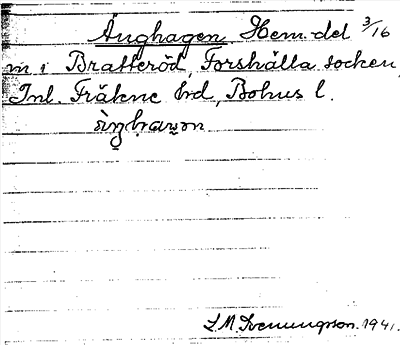 Ånghagen Hem. del 3/16
m i Bratteröd, Forshälla socken
Inl. Fräkne hrd, Bohus l.
J. M. Svenungsson. 1941.